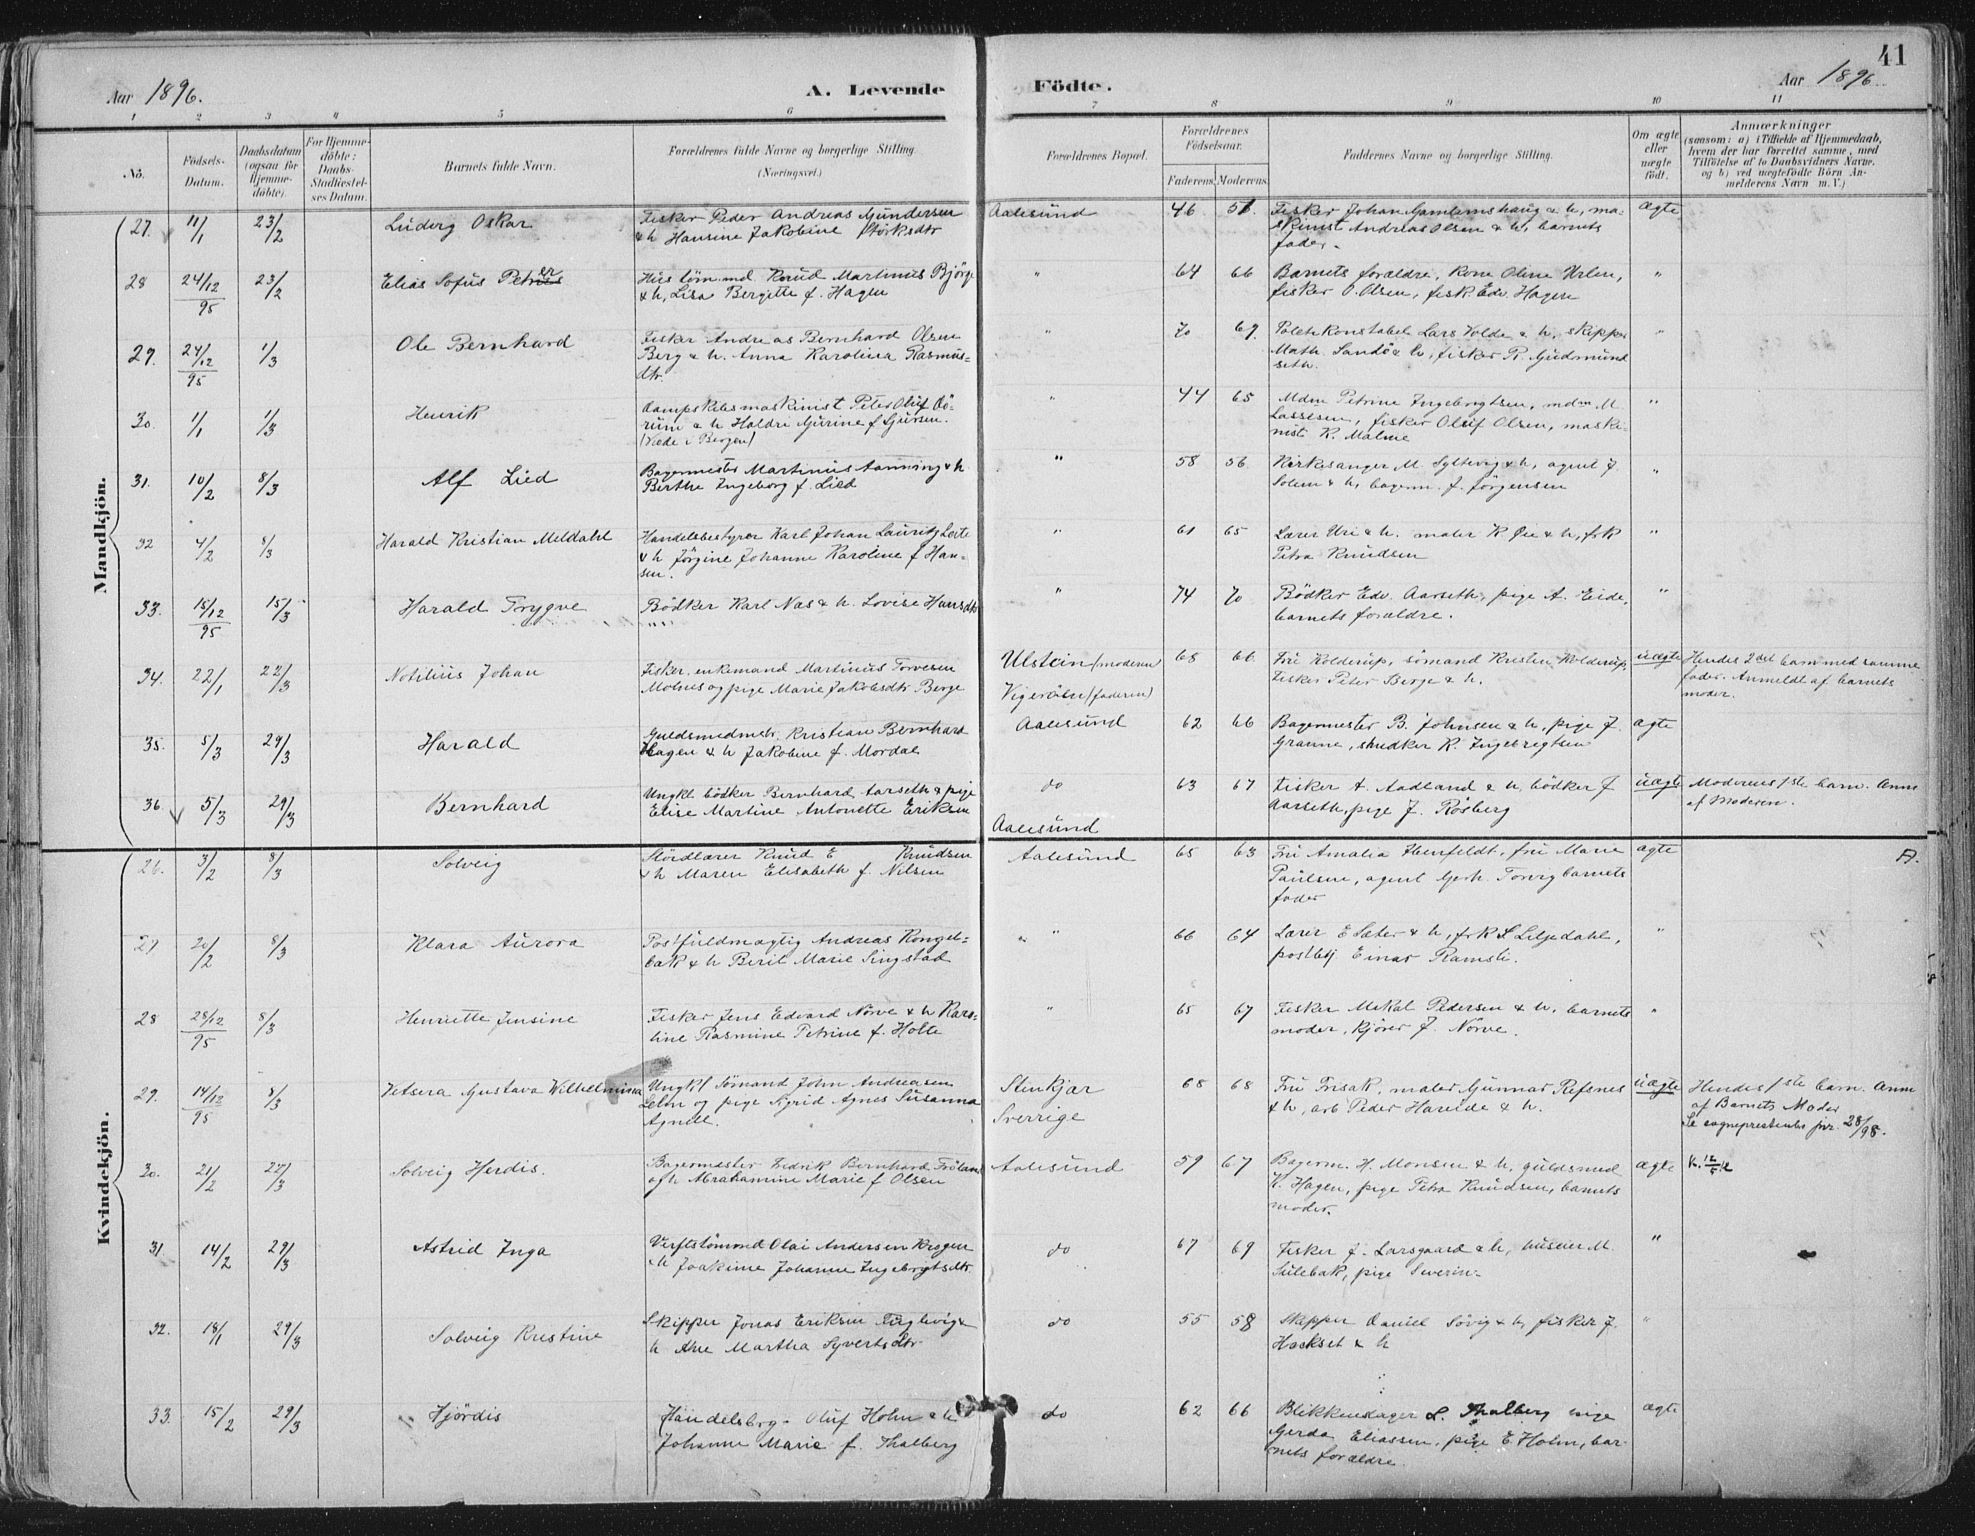 41
Aar 1896.
A. Levende
Födte.
Aar 1896.
1 2 3 4 5 6 7 8 9 10 11
No.
Födsels-
Datum.
Daabsdatum
(ogsaa for
Hjemme-
döbte).
For Hjemme-
döbte:
Daabs-
Stadfæstel-
ses Datum.
Barnets fulde Navn.
Forældrenes fulde Navne og borgerlige Stilling
(Næringsvei.)
Forældrenes Bopæl.
Forældrenes
Födselsaar.
Faderens. Moderens.
Faddernes Navne og borgerlige Stilling.
Om ægte
eller
uægte
födt.
Anmærkninger
(saasom: a) i Tilfælde af Hjemmedaab,
hvem der har forrettet samme, med
Tilföielse af to Daabsvidners Navne.
og b) ved uægtefödte Börn An-
melderens Navn m. V.)
Mandkjön.
27. 11/1 23/2 Ludvig Oskar
Fisker Peder Andreas Gundersen
& h Hansine Jakobine
Aalesund 46 56.
Fisker Johan Gamlemshaug & h, ma-
skinist Andreas Olsen & h, barnets
fader.
ægte
28 24/12 95 23/2 Elias Sofus Petter
Hustöm.md. Knud Martinus Bjørge
& h, Lisa Bergitte f. Hagen
" 64 66
Barnets forældre, kone Oline
fisker O. Olsen, fisk. Edv. Hagen
"
29. 24/12 95 1/3 Ole Bernhard
Fisker Andreas Bernhard Olsen
Berg & h. Anna Karolina Rasmus-
dtr.
" 70 69.
Politikonstabel Lars Volde & h, skipper
Math. Sandö & h, fisker R. Gudmund
seth.
"
30. 1/1 1/3 Henrik
Dampskibsmaskinist Peter Oluf
& h Haldre Gurine f Gjursen.
(Viede i Bergen)
" 44 65
Mdm Petrine Ingebrigtsen, mdm M.
Lassesen, fisker Oluf Olsen, maski-
nist K. Malme
"
31. 10/2 8/3 Alf Lied
Bagermester Martinus Aanning & h
Berthe Ingeborg f. Lied
" 58 56
Kirkesanger M. Syltevig & h, agent J.
Solem & h, bagerm. J. Jörgensen
"
32 4/2 8/3 Harald Kristian Meldahl
Handelsbestyrer Karl Johan Lauritz
& h Jörgine Johanne Karoline f Han-
sen.
" 61 65
Lærer Uri & h. maler K. & h, frk
Petra Knudsen
"
33. 15/12 95 15/3 Harald Trygve
Bödker Karl Nas & h. Lovise Hansdtr
" 74 70
Bödker Edv. Aarseth, pige A. Eide,
barnets forældre.
"
34. 22/1 22/3 Notilius Johan
Fisker, enkemand Martinus Torvesen
Molnes og pige Marie Jakobsdtr Berge
Ulstein (moderen)
Vigeröen (faderen)
68 66
Fru Kolderup, sömand Kristen Kolderup,
Fisker Peter Berge & h.
uægte
Hendes 2det barn med samme
fader. Anmeldt af barnets
moder.
35. 5/3 29/3 Harald
Guldsmedmstr. Kristian Bernhard
Hagen & h Jakobine f. Mordal
Aalesund 62 66
Bagermester B. Johnsen & h, pige J.
Granne, snedker K. Ingebrigtsen
ægte
36. 5/3 29/3 Bernhard
Ungkl. bödker Bernhard Aarseth & pige
Elise Martine Antonette Eriksen
do
Aalesund
63 67
Fisker A. Aadland & h, bödker J
Aarseth, pige J. Rösberg
uægte
Moderens 1ste barn. Anm
af Moderen.
Kvindekjön.
26. 3/2 8/3 Solveig
Stördlærer Knud E Knudsen
& h Maren Elisabeth f. Nilsen
Aalesund 65 63
Fru Amalia Ibenfeldt, fru Marie
Paulsen, agent Gerh. barnets
fader
ægte
A.
27 20/2 8/3 Klara Aurora
Postfuldmægtig Andreas Kongel-
bak & h Berit Marie Singstad
" 66 64
Lærer E Sæter & h, frk S Liljedahl,
postbtj Einar Ramsli.
"
28 28/12 95 8/3 Henriette Jensine
Fisker Jens Edvard Nörve & h Karo-
line Rasmine Petrine f. Holte
" 65 67
Fisker Mikal Pedersen & h, barnets
moder, kjörer J. Nörve.
"
29. 14/12 95 8/3 Vetsera Gustava Wilhelmina
Ungkl Sömand John Andreasen
og pige Sigrid Agnes Susanna
Agnell.
Stenkjær
Sverrige
68 68
Fru Frisak, maler Gunnar Refsnes
& h, arb Peder Hareide & h.
uægte
Hendes 1ste barn. Anm
af Barnets Moder
Se sogneprestembs jnr. 28/98.
30. 21/2 22/3 Solveig Herdis.
Bagermester Fedrik Bernhard Fröland
og h Abrahamine Marie f Olsen
Aalesund 59 67
Bagerm. H. Monsen & h, guldsmed
K. Hagen, pige Petra Knudsen, barnets
moder.
ægte
31. 14/2 29/3 Astrid Inga
Verftstömmd Olai Andersen
& h Joakime Johanne Ingebrigtsdtr.
do 67 69
Fisker J. Larsgaard & h, M.
Sulebak, pige Severin-
"
32. 18/1 29/3 Solveig Kristine
Skipper Jonas Eriksen Fuglevig &
h Ane Martha Syvertsdtr
do 55 58
Skipper Daniel Sövig & h, fisker J.
Hoekset & h
"
33. 15/2 29/3 Hjördis
Handelsbrg. Oluf Holm & h
Johanne Marie f. Thalberg
do 62 66
Blikkenslager L. Thalberg pige
Gerda Eliassen, pige E Holm, bar-
nets forældre.
ægte